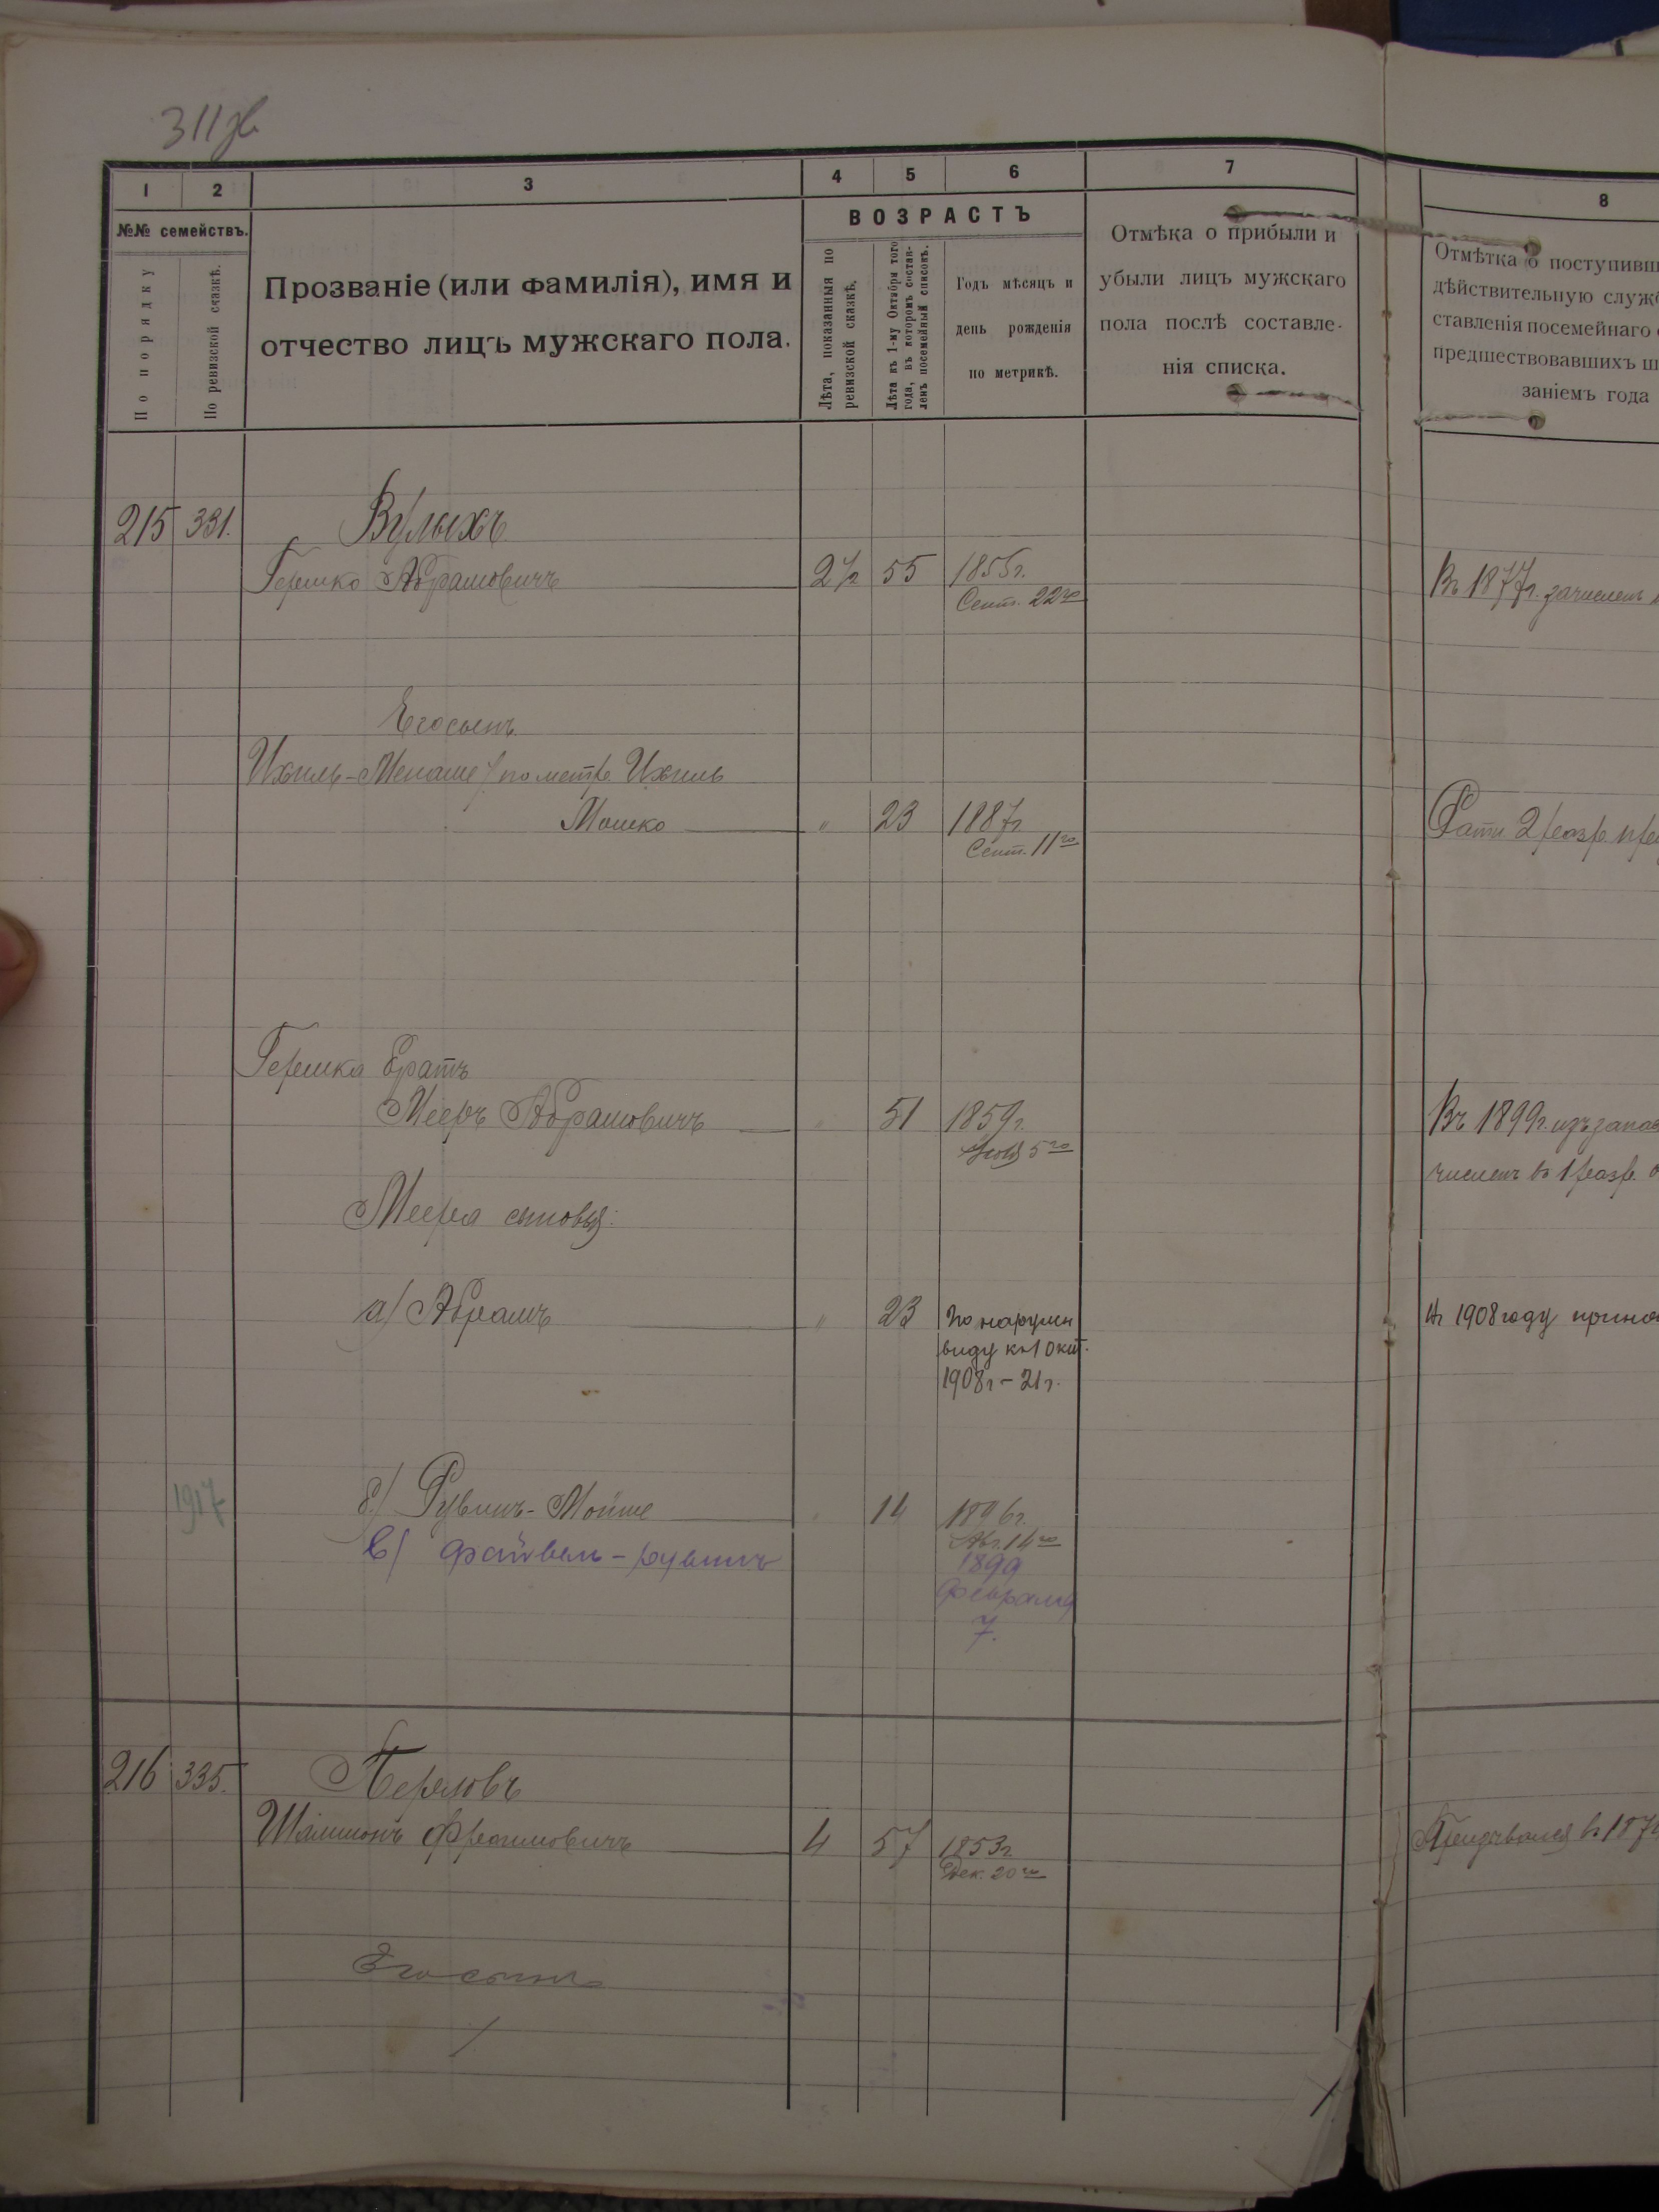 311 зв
1 2 3 4 5 6 7 8
№№ семействъ.
По порядку
По ревизской сказкѣ.
Прозваніе (или фамилія), имя и
отчество лицъ мужскаго пола.
ВОЗРАСТЪ
Лѣта, показанныя по
ревизской сказкѣ.
Лѣта къ 1-му Октября того
года, въ которомъ состав-
ленъ посемейный списокъ.
Годъ мѣсяцъ и
день рожденія
по метрикѣ.
Отмѣка о прибыли и
убыли лицъ мужскаго
пола послѣ составле-
нія списка.
Отмѣтка о поступивш
дѣйствительную служб
ставленія посемейнаго
предшествовавшихъ
заніемъ года
215 331. Вулыхъ
Гершко Абрамовичъ 2 1/2 55 1855г.
Сент. 22го
Въ 1877г. зачисленъ
Его сынъ
Ихиль-Менаше / по метр. Ихиль
Мошко " 23 1887г
Сент. 11го
Ратн 2 разр.
Гершка братъ
Мееръ Абрамовичъ " 51 1859г.
5го
Въ 1899г. изъ запас
численъ въ 1 разр.
Меера сыновья:
а/ Абрамъ " 23 По наружн
виду къ 1 Окт.
1908г - 21г.
Въ 1908 году
1917
б/ Рувинъ-Мойше " 14 1896г.
Авг. 14го
в/ Файвель-рувинъ 1899
Февраля
7.
216 335. Перловъ
Шлиомъ Фроимовичъ 4 57 1853г
Дек. 20го
Его сынъ